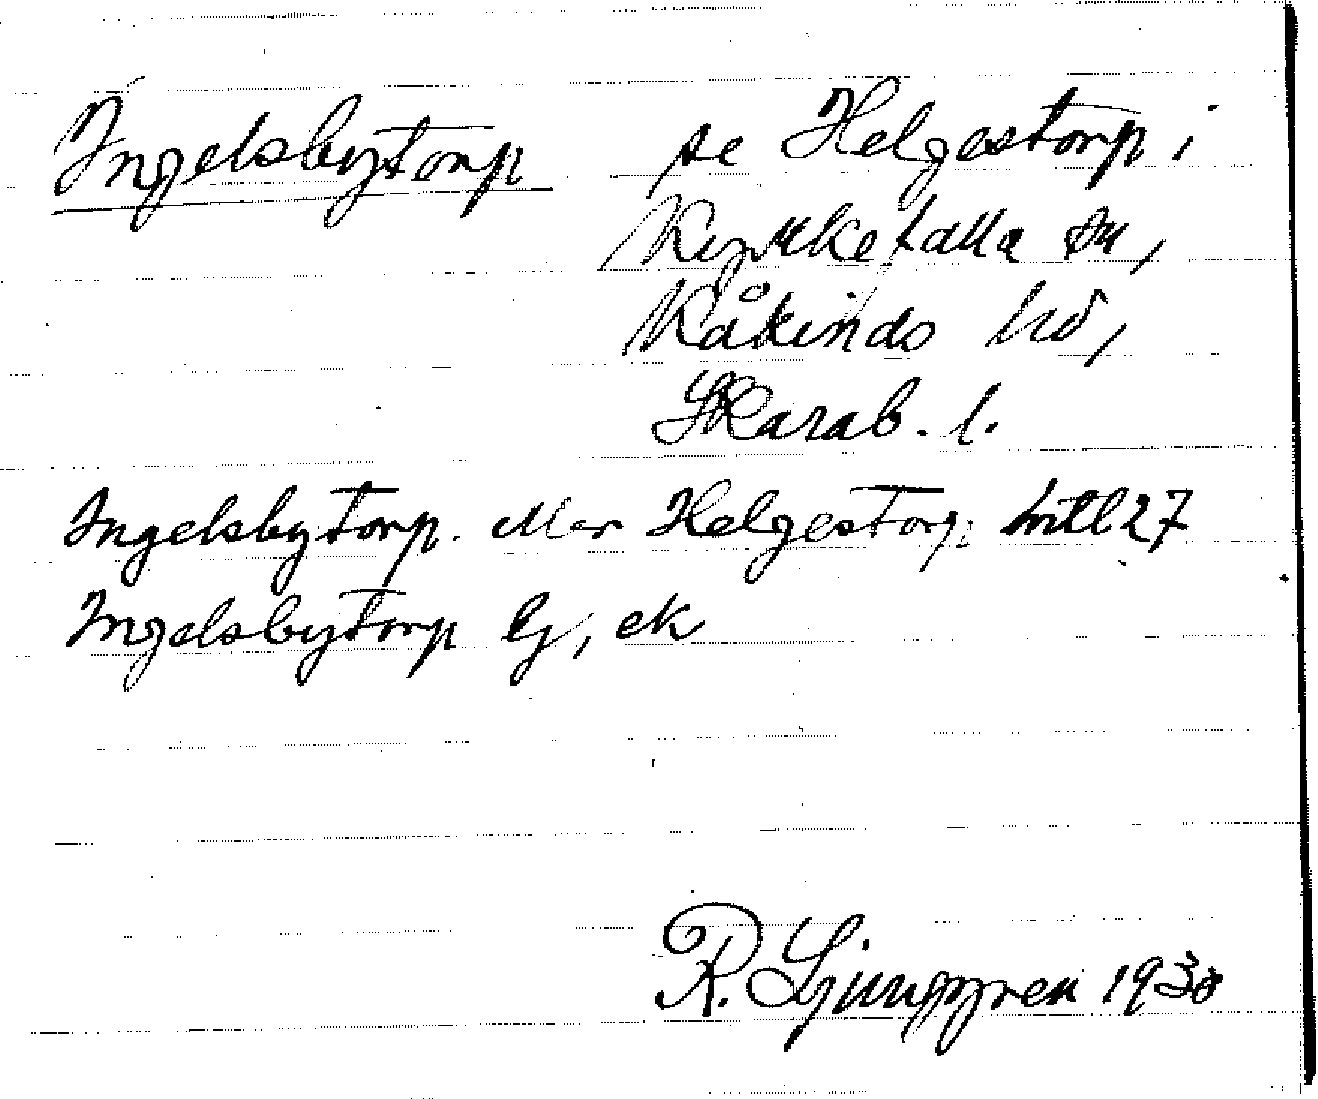 Ingelsbytorp se Helgestorp i
Kyrkefalla sn,
Kåkinds hd,
Skarab. l.
Ingelsbytorp. Mer Helgestorp
Ingelsbytorp Gj, ek
R. Ljunggren 1930